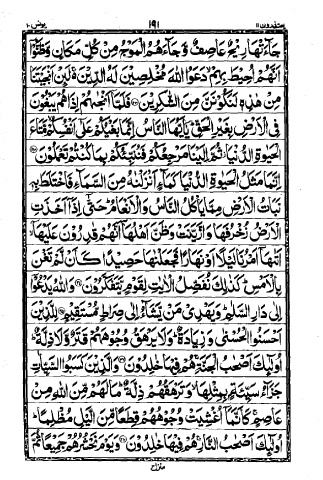 یونس ١٠ ١٩١ یعتذرون ١١
جَآءَتْهَا رِیْحٌ عَاصِفٌ وَّجَآءَهُمُ الْمَوْجُ مِنْ كُلِّ مَكَانٍ وَّظَنُّوْۤا
اَنَّهُمْ اُحِیْطَ بِهِمْ دَعَوُا اللّٰهَ مُخْلِصِیْنَ لَهُ الدِّیْنَ لَئِنْ اَنْجَیْتَنَا
مِنْ هٰذِهٖ لَنَكُوْنَنَّ مِنَ الشّٰكِرِیْنَ ﴿۲۲﴾ فَلَمَّاۤ اَنْجٰىهُمْ اِذَا هُمْ یَبْغُوْنَ
فِی الْاَرْضِ بِغَیْرِ الْحَقِّ یٰۤاَیُّهَا النَّاسُ اِنَّمَا بَغْیُكُمْ عَلٰۤی اَنْفُسِكُمْ مَّتَاعَ
الْحَیٰوةِ الدُّنْیَا ثُمَّ اِلَیْنَا مَرْجِعُكُمْ فَنُنَبِّئُكُمْ بِمَا كُنْتُمْ تَعْمَلُوْنَ ﴿۲۳﴾
اِنَّمَا مَثَلُ الْحَیٰوةِ الدُّنْیَا كَمَآءٍ اَنْزَلْنٰهُ مِنَ السَّمَآءِ فَاخْتَلَطَ بِهٖ
نَبَاتُ الْاَرْضِ مِمَّا یَاْكُلُ النَّاسُ وَالْاَنْعَامُ حَتّٰۤی اِذَاۤ اَخَذَتِ
الْاَرْضُ زُخْرُفَهَا وَازَّیَّنَتْ وَظَنَّ اَهْلُهَاۤ اَنَّهُمْ قٰدِرُوْنَ عَلَیْهَاۤ
اَتٰىهَاۤ اَمْرُنَا لَیْلًا اَوْ نَهَارًا فَجَعَلْنٰهَا حَصِیْدًا كَاَنْ لَّمْ تَغْنَ
بِالْاَمْسِ كَذٰلِكَ نُفَصِّلُ الْاٰیٰتِ لِقَوْمٍ یَّتَفَكَّرُوْنَ ﴿۲۴﴾ وَاللّٰهُ یَدْعُوْۤا
اِلٰی دَارِ السَّلٰمِ وَیَهْدِیْ مَنْ یَّشَآءُ اِلٰی صِرَاطٍ مُّسْتَقِیْمٍ ﴿۲۵﴾ لِلَّذِیْنَ
اَحْسَنُوا الْحُسْنٰی وَزِیَادَةٌ وَلَا یَرْهَقُ وُجُوْهَهُمْ قَتَرٌ وَّلَا ذِلَّةٌ
اُولٰٓئِكَ اَصْحٰبُ الْجَنَّةِ هُمْ فِیْهَا خٰلِدُوْنَ ﴿۲۶﴾ وَالَّذِیْنَ كَسَبُوا السَّیِّاٰتِ
جَزَآءُ سَیِّئَةٍۭ بِمِثْلِهَا وَتَرْهَقُهُمْ ذِلَّةٌ مَا لَهُمْ مِّنَ اللّٰهِ مِنْ
عَاصِمٍ كَاَنَّمَاۤ اُغْشِیَتْ وُجُوْهُهُمْ قِطَعًا مِّنَ الَّیْلِ مُظْلِمًا
اُولٰٓئِكَ اَصْحٰبُ النَّارِ هُمْ فِیْهَا خٰلِدُوْنَ ﴿۲۷﴾ وَیَوْمَ نَحْشُرُهُمْ جَمِیْعًا ثُمَّ